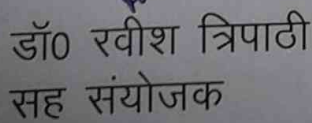 डॉ0 रवीश त्रिपाठी
सह संयोजक